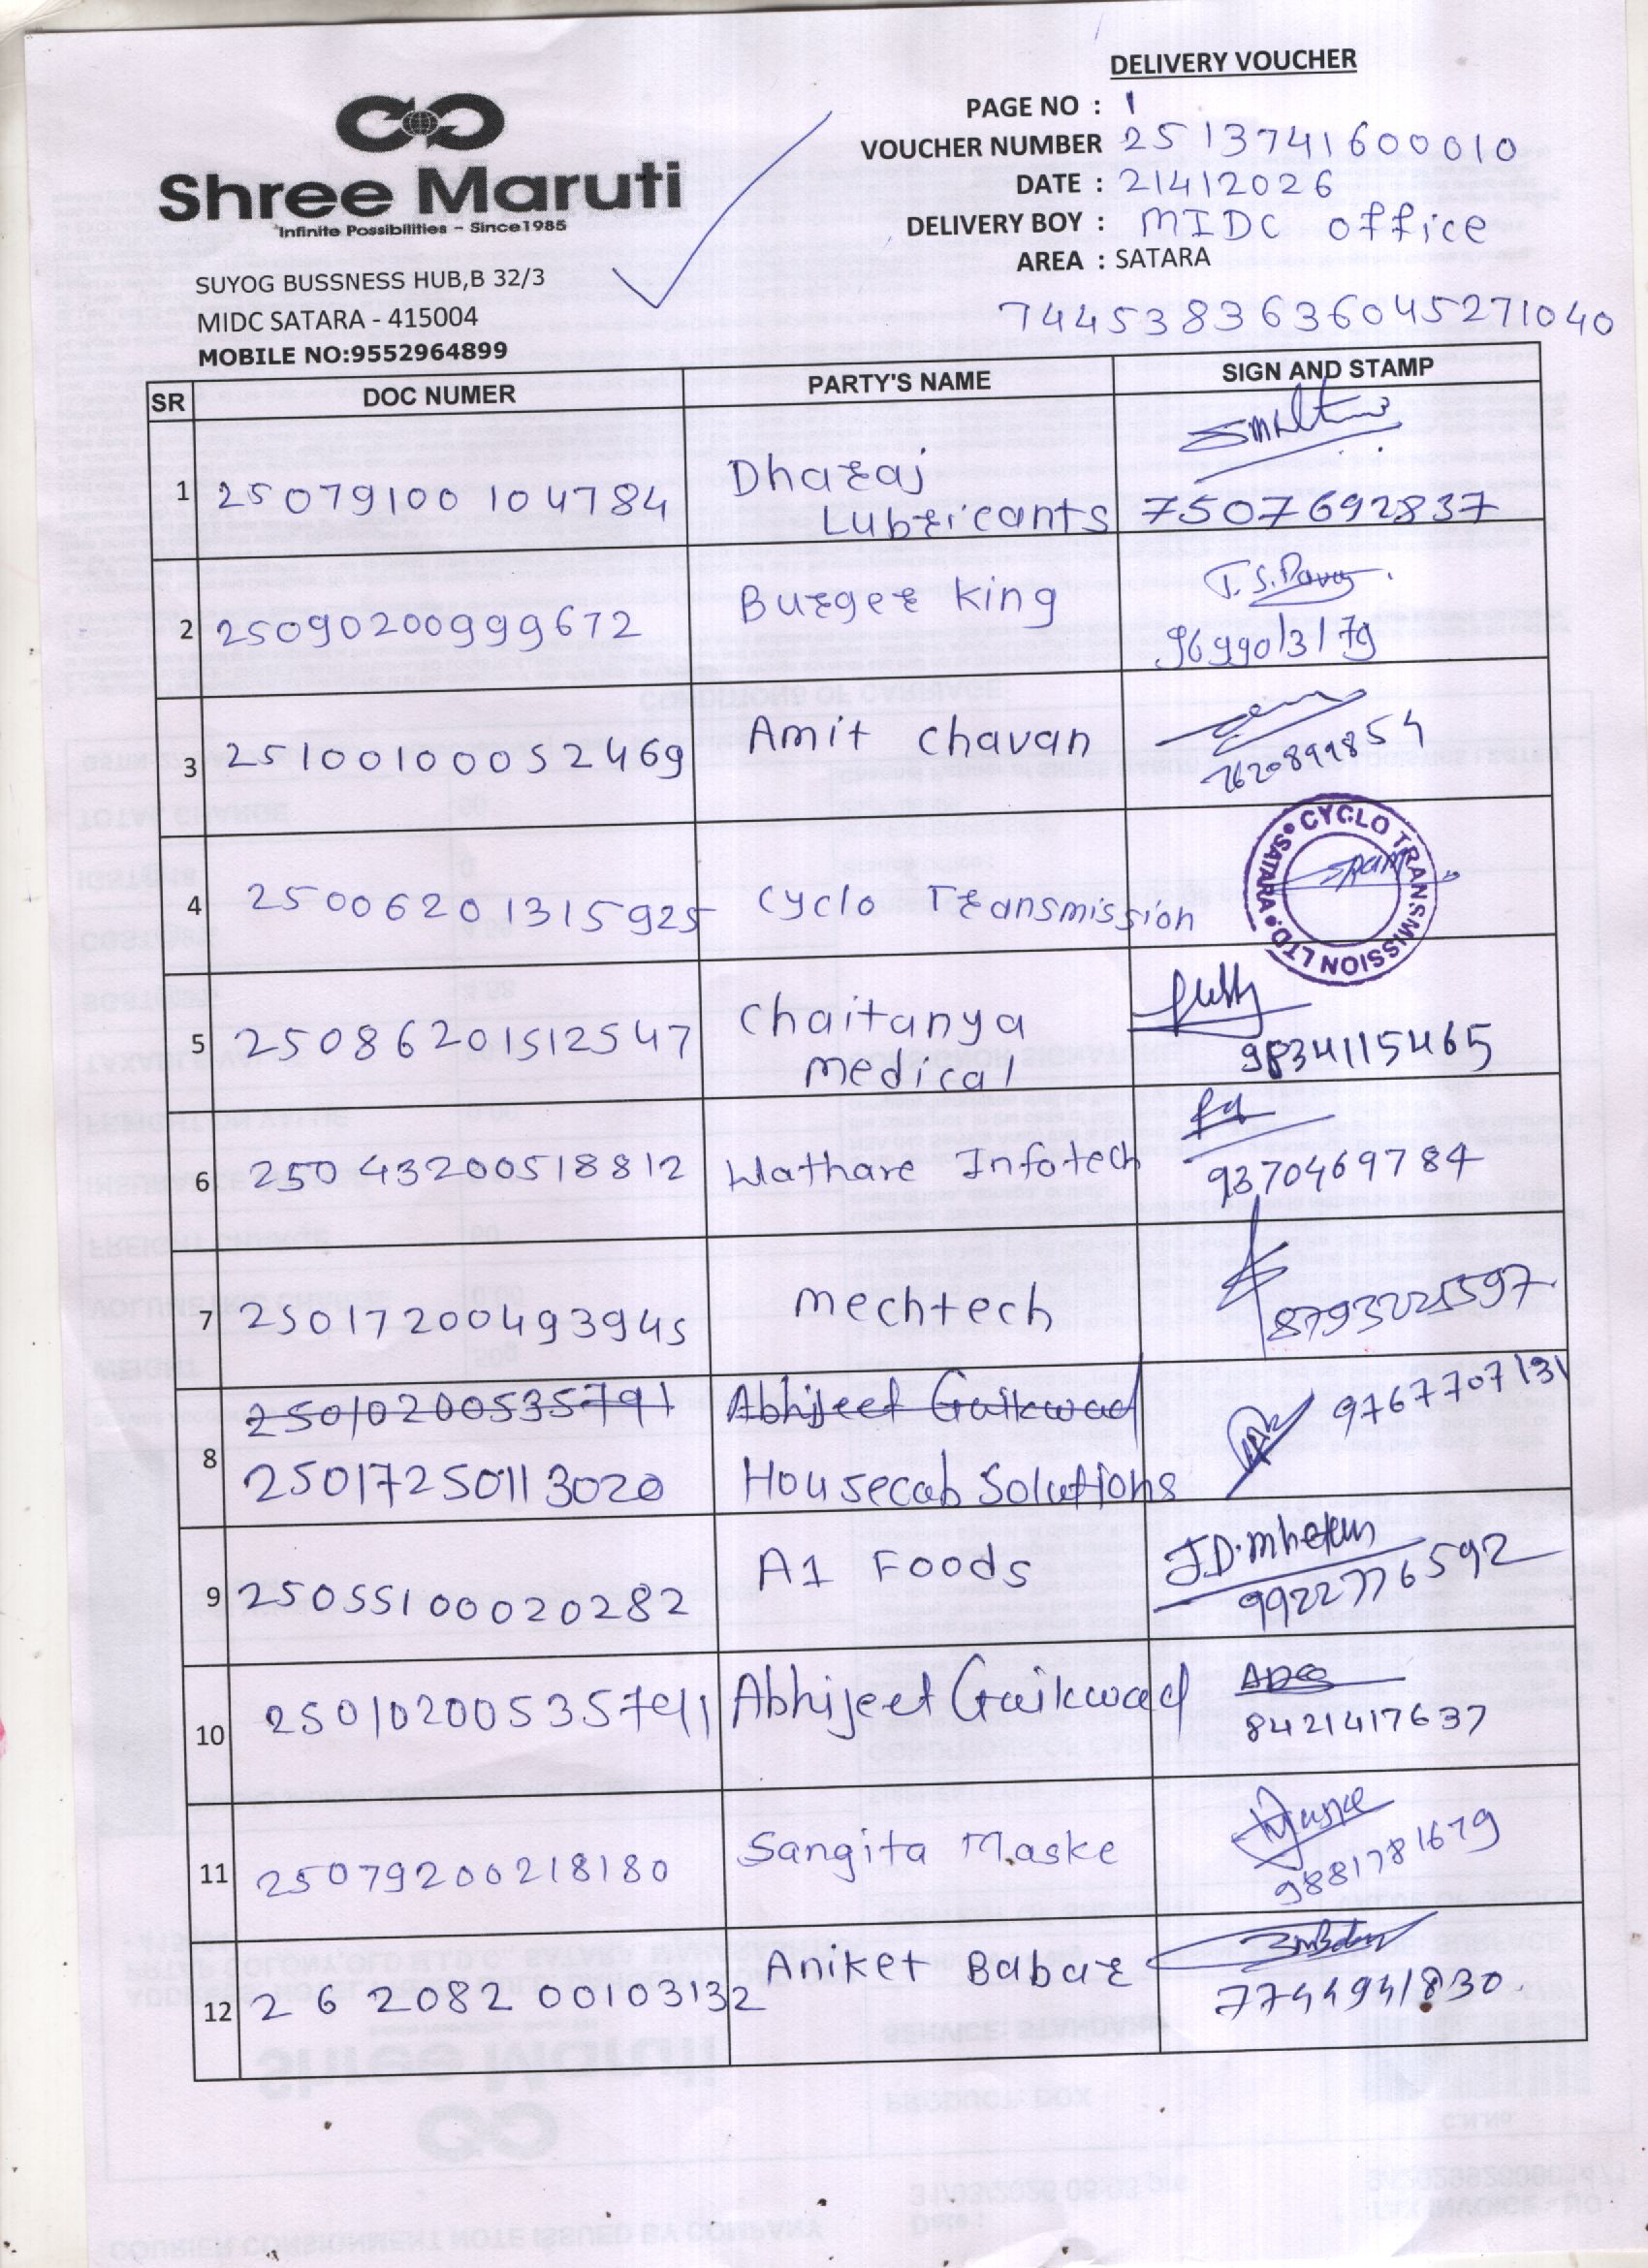 DELIVERY VOUCHER
PAGE NO : 1
VOUCHER NUMBER 2513741600010
DATE : 21412026
DELIVERY BOY : MIDC office
AREA : SATARA
7445383636045271040
Shree Maruti
Infinite Possibilities - Since1985
SUYOG BUSSNESS HUB,B 32/3
MIDC SATARA - 415004
MOBILE NO:9552964899
SR DOC NUMER PARTY'S NAME SIGN AND STAMP
1 25079100104784 Dharaj Lubricants 7507692837
2 25090200999672 Burger king 9699013179
3 25100100052469 Amit Chavan 7620899854
4 25006201315925 Cyclo Transmission
CYCLO TRANSMISSION LTD. SATARA
5 25086201512547 Chaitanya medical 9834115465
6 25043200518812 Wathare Infotech 9370469784
7 25017200493945 mechtech
8 25010200535791 Abhijeet Gaikwad 9767707131
25017250113020 Housecab Solutions
9 25055100020282 A1 Foods J.D.mhetre 9922776592
10 25010200535791 Abhijeet Gaikwad ADG 8421417637
11 25079200218180 Sangita Maske Maske 9881781679
12 26208200103132 Aniket Babar 7744941830